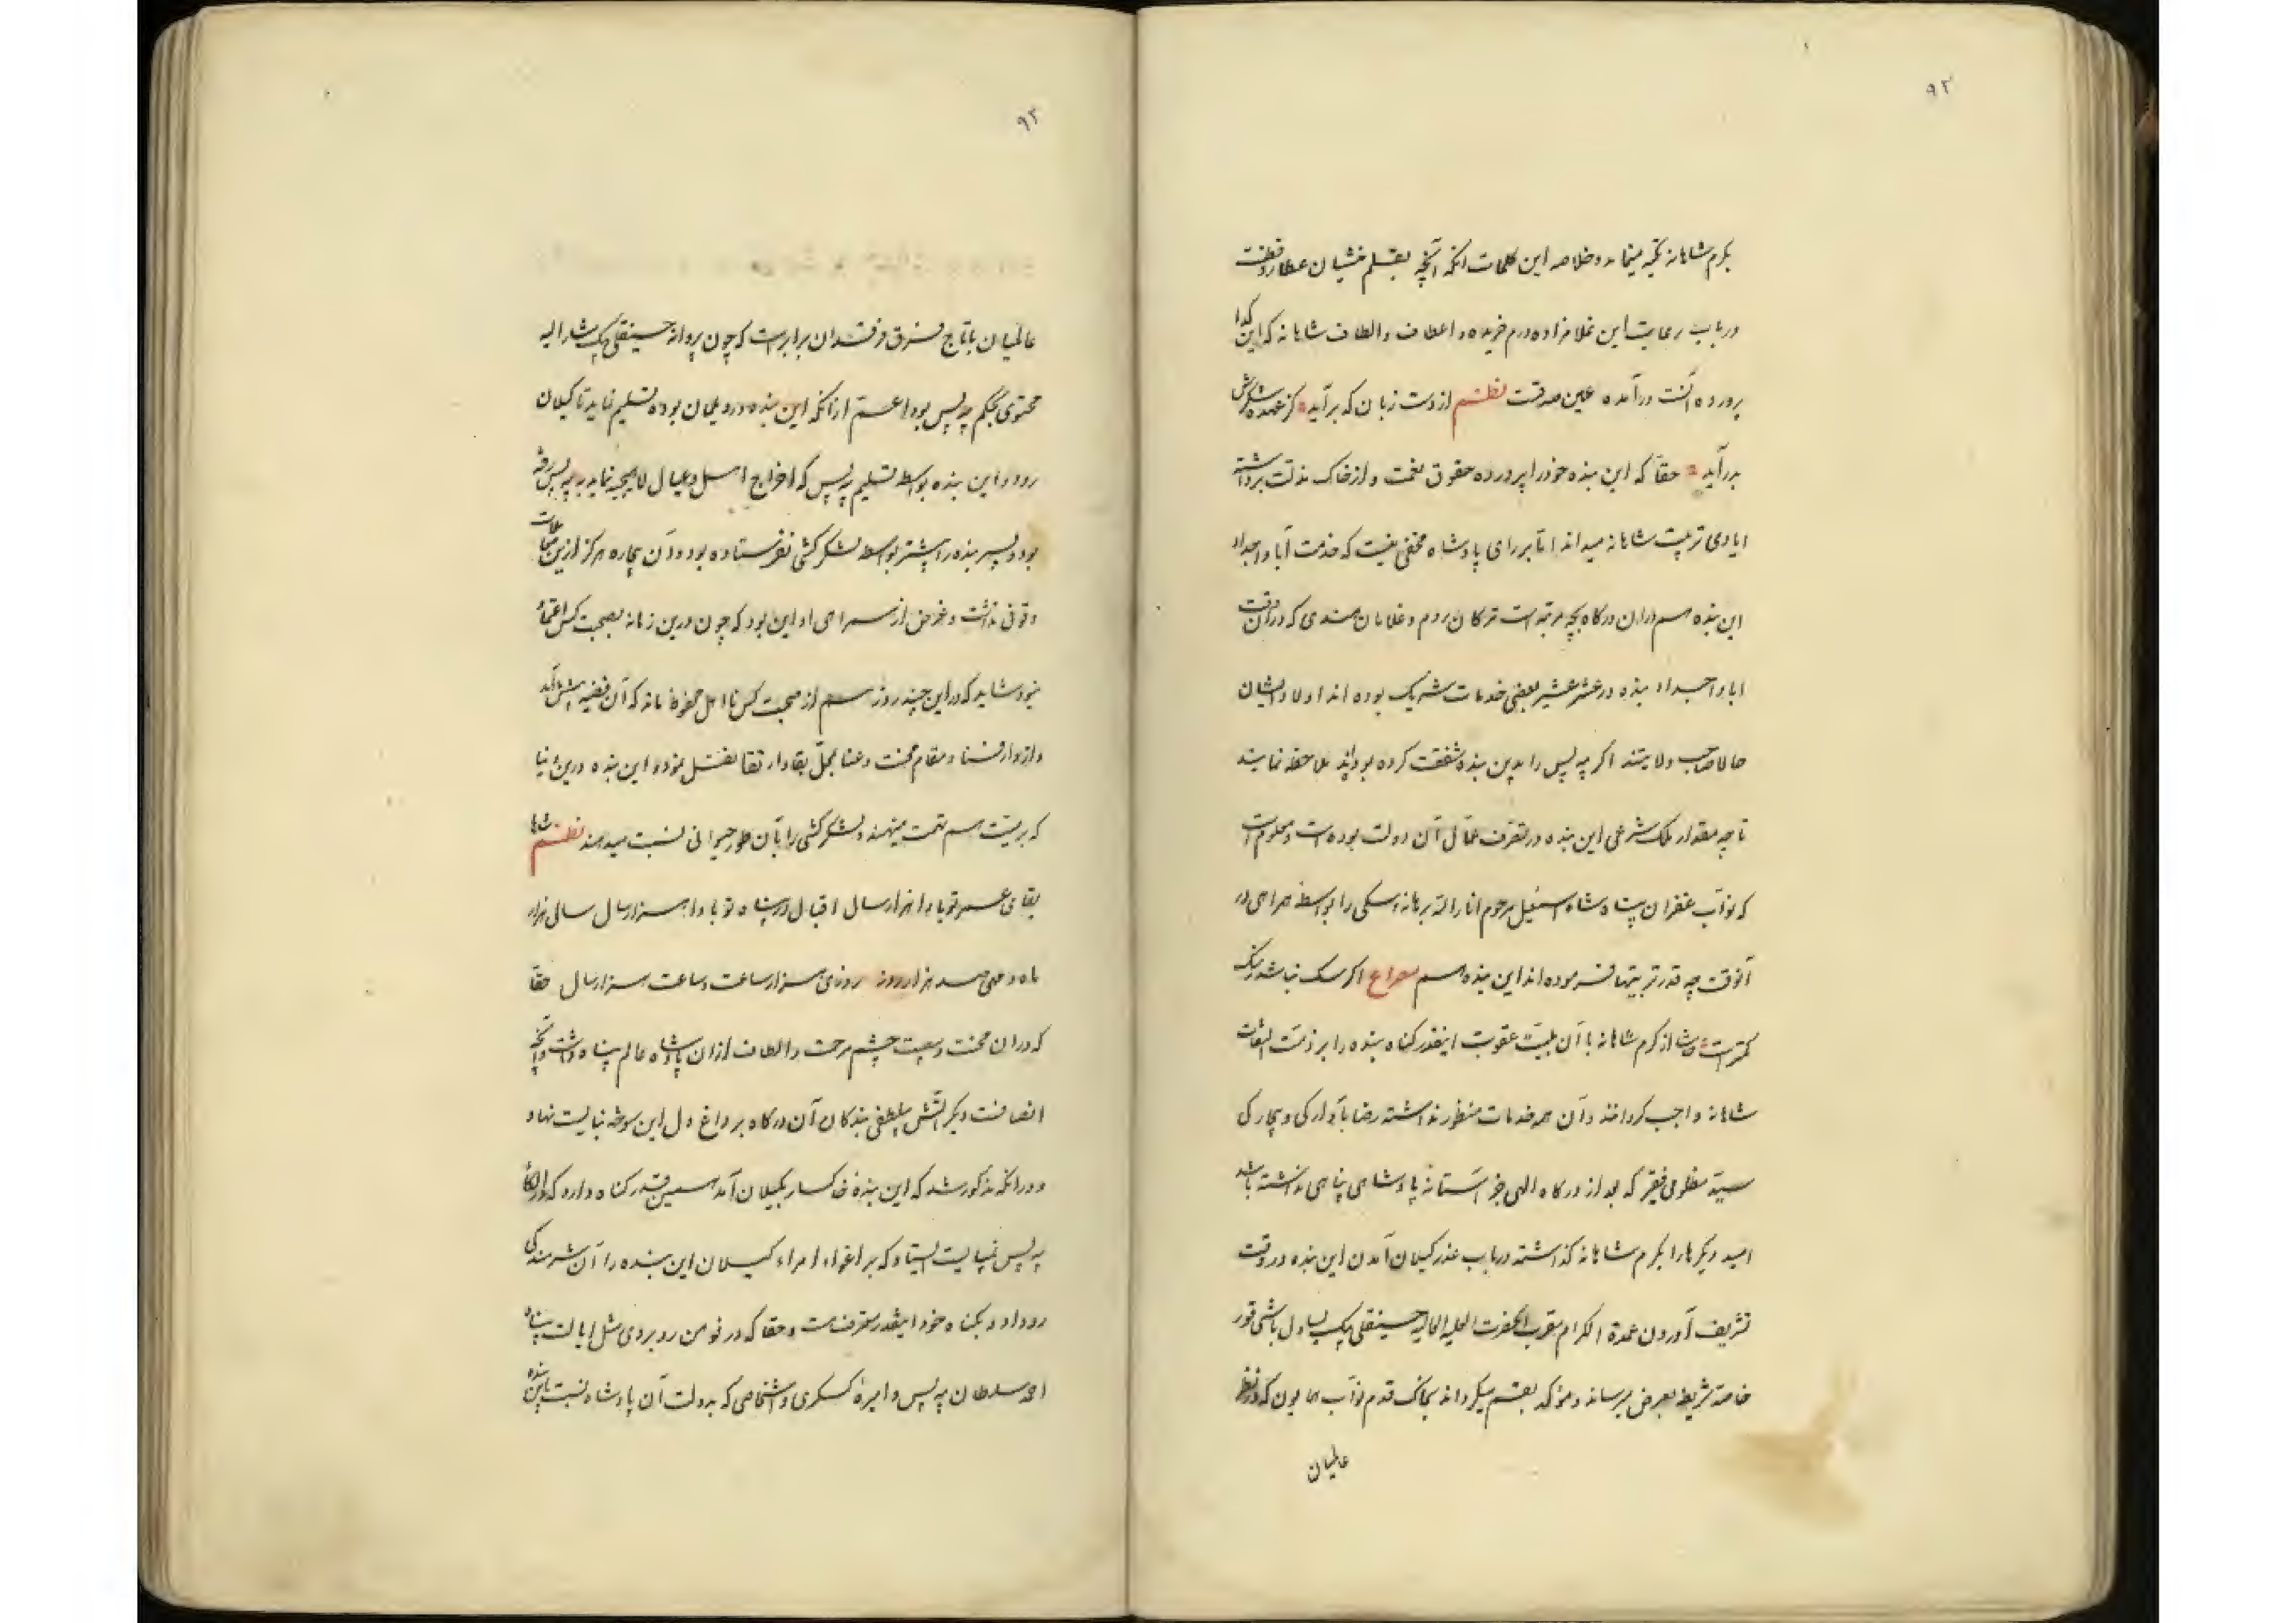 ۹۲
بکرم شاهانه تکیه مینماید و خلاصه این کلمات آنکه آنچه بقلم منشیان عطارد فطنت
در باب رعایت این غلامزاده درم خریده و اعطاف و الطاف شاهانه که این کدا
پرورده آنست در آمده عین صدقست نظم از دست زبان که برآید کز عهده شکرش
بدر آید حقا که این بنده خود را پرورده حقوق نعمت و از خاک مذلت برداشته
ایادی تربیت شاهانه میداند اما بر رای پادشاه مخفی نیست که خدمت آبا و اجداد
این بنده هم در ان درکاه بچه مرتبه است ترکان روم و غلامان هندی که در آنوقت
ابا و اجداد بنده در عشر عشیر بعضی خدمات شریک بوده اند اولاد ایشان
حالا صاحب ولایتند اکر په پس را بدین بنده شفقت کرده بودند ملاحظه نمایند
تا چه مقدار ملک شرعی این بنده در تصرف عمال آن دولت بوده است و معلوم است
که نواب غفران پناه شاه اسمعیل مرحوم انار الله برهانه سکی را بواسطه همراهی در
آنوقت چه قدر تربیتها فرموده اند این بنده هم مصراع اکر سک نباشد ز سک
کمتر است حاشا از کرم شاهانه با آن بلیت عقوبت اینقدر کناه بنده را بر ذمت التفات
شاهانه واجب کردانند و آن همه خدمات منظور نداشته رضا بآوارکی و بیچارکی
سید مظلومی فقیر که بعد از درکاه الهی جز آستانه پادشاهی پناهی نداشته باشد
امید دیکرها را بکرم شاهانه کذاشته در باب عذر کیلان آمدن این بنده در وقت
تشریف آوردن عمدة الکرام مقرب الحضرت العلیه العالیه حسینقلی بیک یساول باشی قور
خاصه شریفه بعرض میرساند و مؤکد بقسم میکرداند بخاک قدم نواب همایون که در نظر
عالمیان
۹۳
عالمیان با تاج فرق فرقدان برابرست که چون پروانه حسینقلی بیک مشار الیه
محتوی بحکم په پس بود اعم از آنکه این بنده در دیلمان بوده تسلیم نماید تا کیلان
رود و این بنده بواسطه تسلیم په پس که اخراج اهل و عیال لاهیجیه نماید به په پس رفته
بود و پسر بنده را پیشتر بواسطه لشکر کشی نفرستاده بود و آن بیچاره هرکز از این معاملات
وقوفی نداشت و غرض از همراهی او این بود که چون در این زمانه بصحبت کس اعتماد
نبود شاید که در این چند روز هم از صحبت کس نا اهل محفوظ ماند که آن قضیه پیش آمد
و از دار فنا و مقام محنت و عنا بمحل بقا و ارتقا نقل نمود و این بنده در این دنیا
که بر میت هم تهمت مینهند و لشکر کشی را بآن طور حیوانی نسبت میدهند نظم شاها
بقای عمر تو بادا هزار سال اقبال در پناه تو بادا هزار سال سالی هزار
ماه و مهی صد هزار روز روزی هزار ساعت و ساعت هزار سال حقا
که در ان محنت و مصیبت چشم مرحمت و الطاف از ان پادشاه عالم پناه داشت و آنچه
انصافست دیکر آتش بیلطفی بندکان آن درکاه بر داغ دل این سوخته نبایست نهاد
و در آنکه مذکور شد که این بنده خاکسار بکیلان آمد همین قدر کناه دارد که در الکاء
په پس نمیبایست ایستاد که بر اغواء امراء کیلان این بنده را آن شرمندکی
رو داد و بکناه خود اینقدر معترفست و حقا که در فومن روبروی مثل ایالت پناه
احمد سلطان په پس و امیره کسکری و اشخاصی که بدولت آن پادشاه نسبت باین بنده